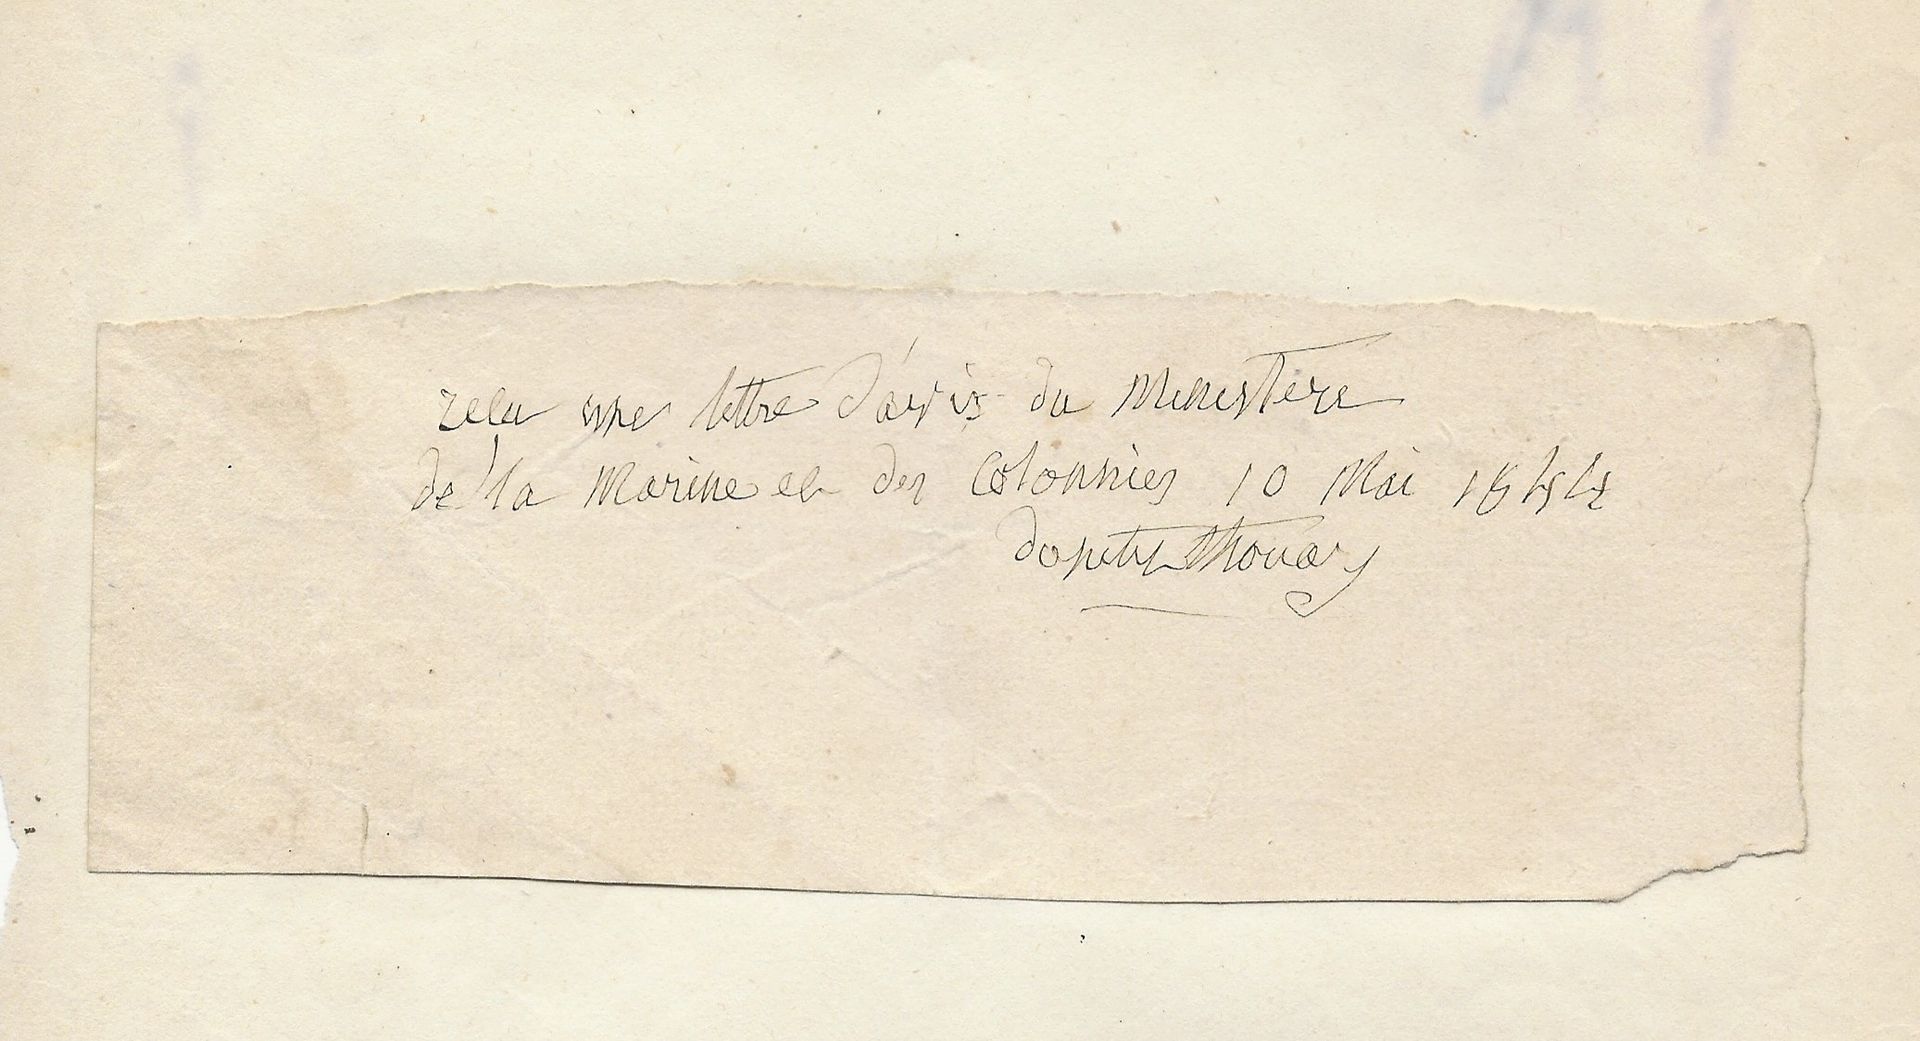 recu une lettre d'avis du Ministere
de la Marine et des Colonnies 10 Mai 1844
dupetit Thouars